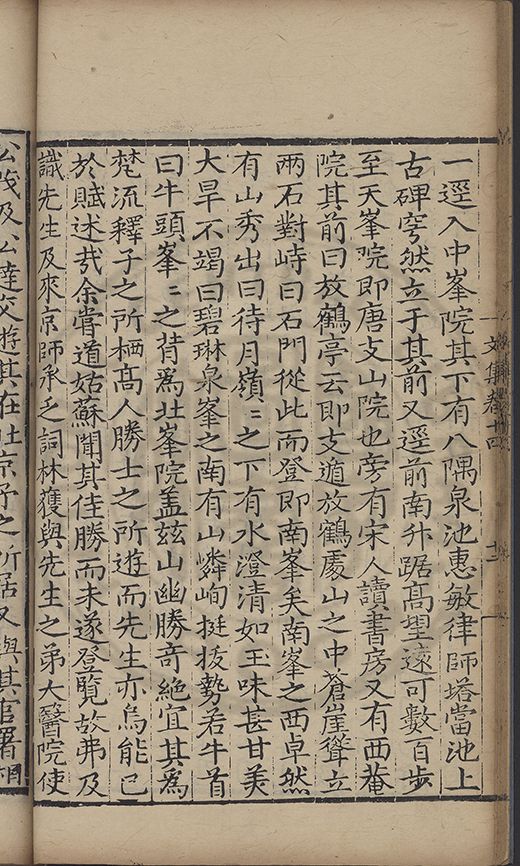 一逕入中峯院其下有八隅泉池惠敏律師塔當池上
古碑穹然立于其前又逕前南升踞髙望逺可數百步
至天峯院即唐支山院也旁有宋人讀書房又有西菴
院其前曰放鶴亭云即支遁放鶴處山之中蒼崖聳立
兩石對峙曰石門從此而登即南峯矣南峯之西卓然
有山秀出曰待月嶺〻之下有水澄清如玉味甚甘美
大旱不竭曰碧琳泉峯之南有山嶙峋挺拔勢若牛首
曰牛頭峯〻之背爲北峯院盖兹山幽勝奇絶宜其爲
梵流釋子之所栖髙人勝士之所遊而先生亦烏能已
於賦述㢤余嘗道姑蘇聞其佳勝而未遂登覽故弗及
識先生及來京師承乏詞林獲與先生之弟大醫院使
公茂及公達交遊其在北京予之所居又與其官署相
文集卷十四
十二